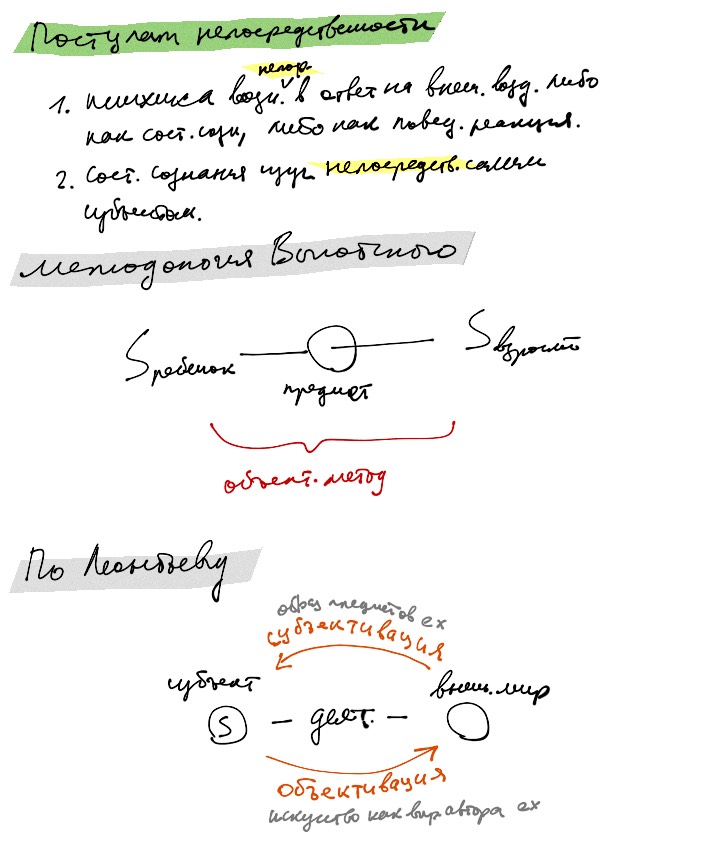 Постулат непосредственности
непоср.
1. психика возн. в ответ на внеш. возд. либо
как сост. созн, либо как повед. реакция.
2. Сост. сознания изуч. непосредств. самим
субъектом.
методология Выготского
S ребенок
предмет
S взрослый
объект. метод
По Леонтьеву
образ предметов ex
субъективация
субъект
внеш. мир
S — деят. —
Объективация
искуство как выр автора ex